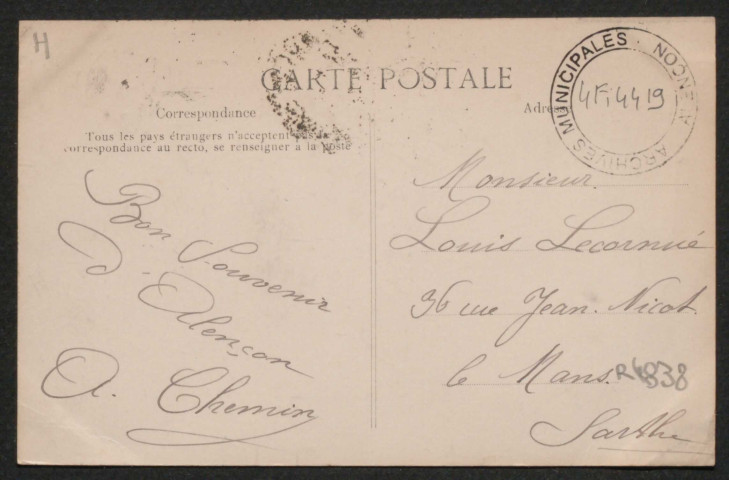 H
CARTE POSTALE
ARCHIVES MUNICIPALES · ALENÇON
4Fi4419
Correspondance
Adresse
Tous les pays étrangers n'acceptent pas de
correspondance au recto, se renseigner à la poste
Bon Souvenir
d'Alençon
A. Chemin
Monsieur.
Louis Lecornué
36 rue Jean. Nicot
le Mans.
R4838
Sarthe